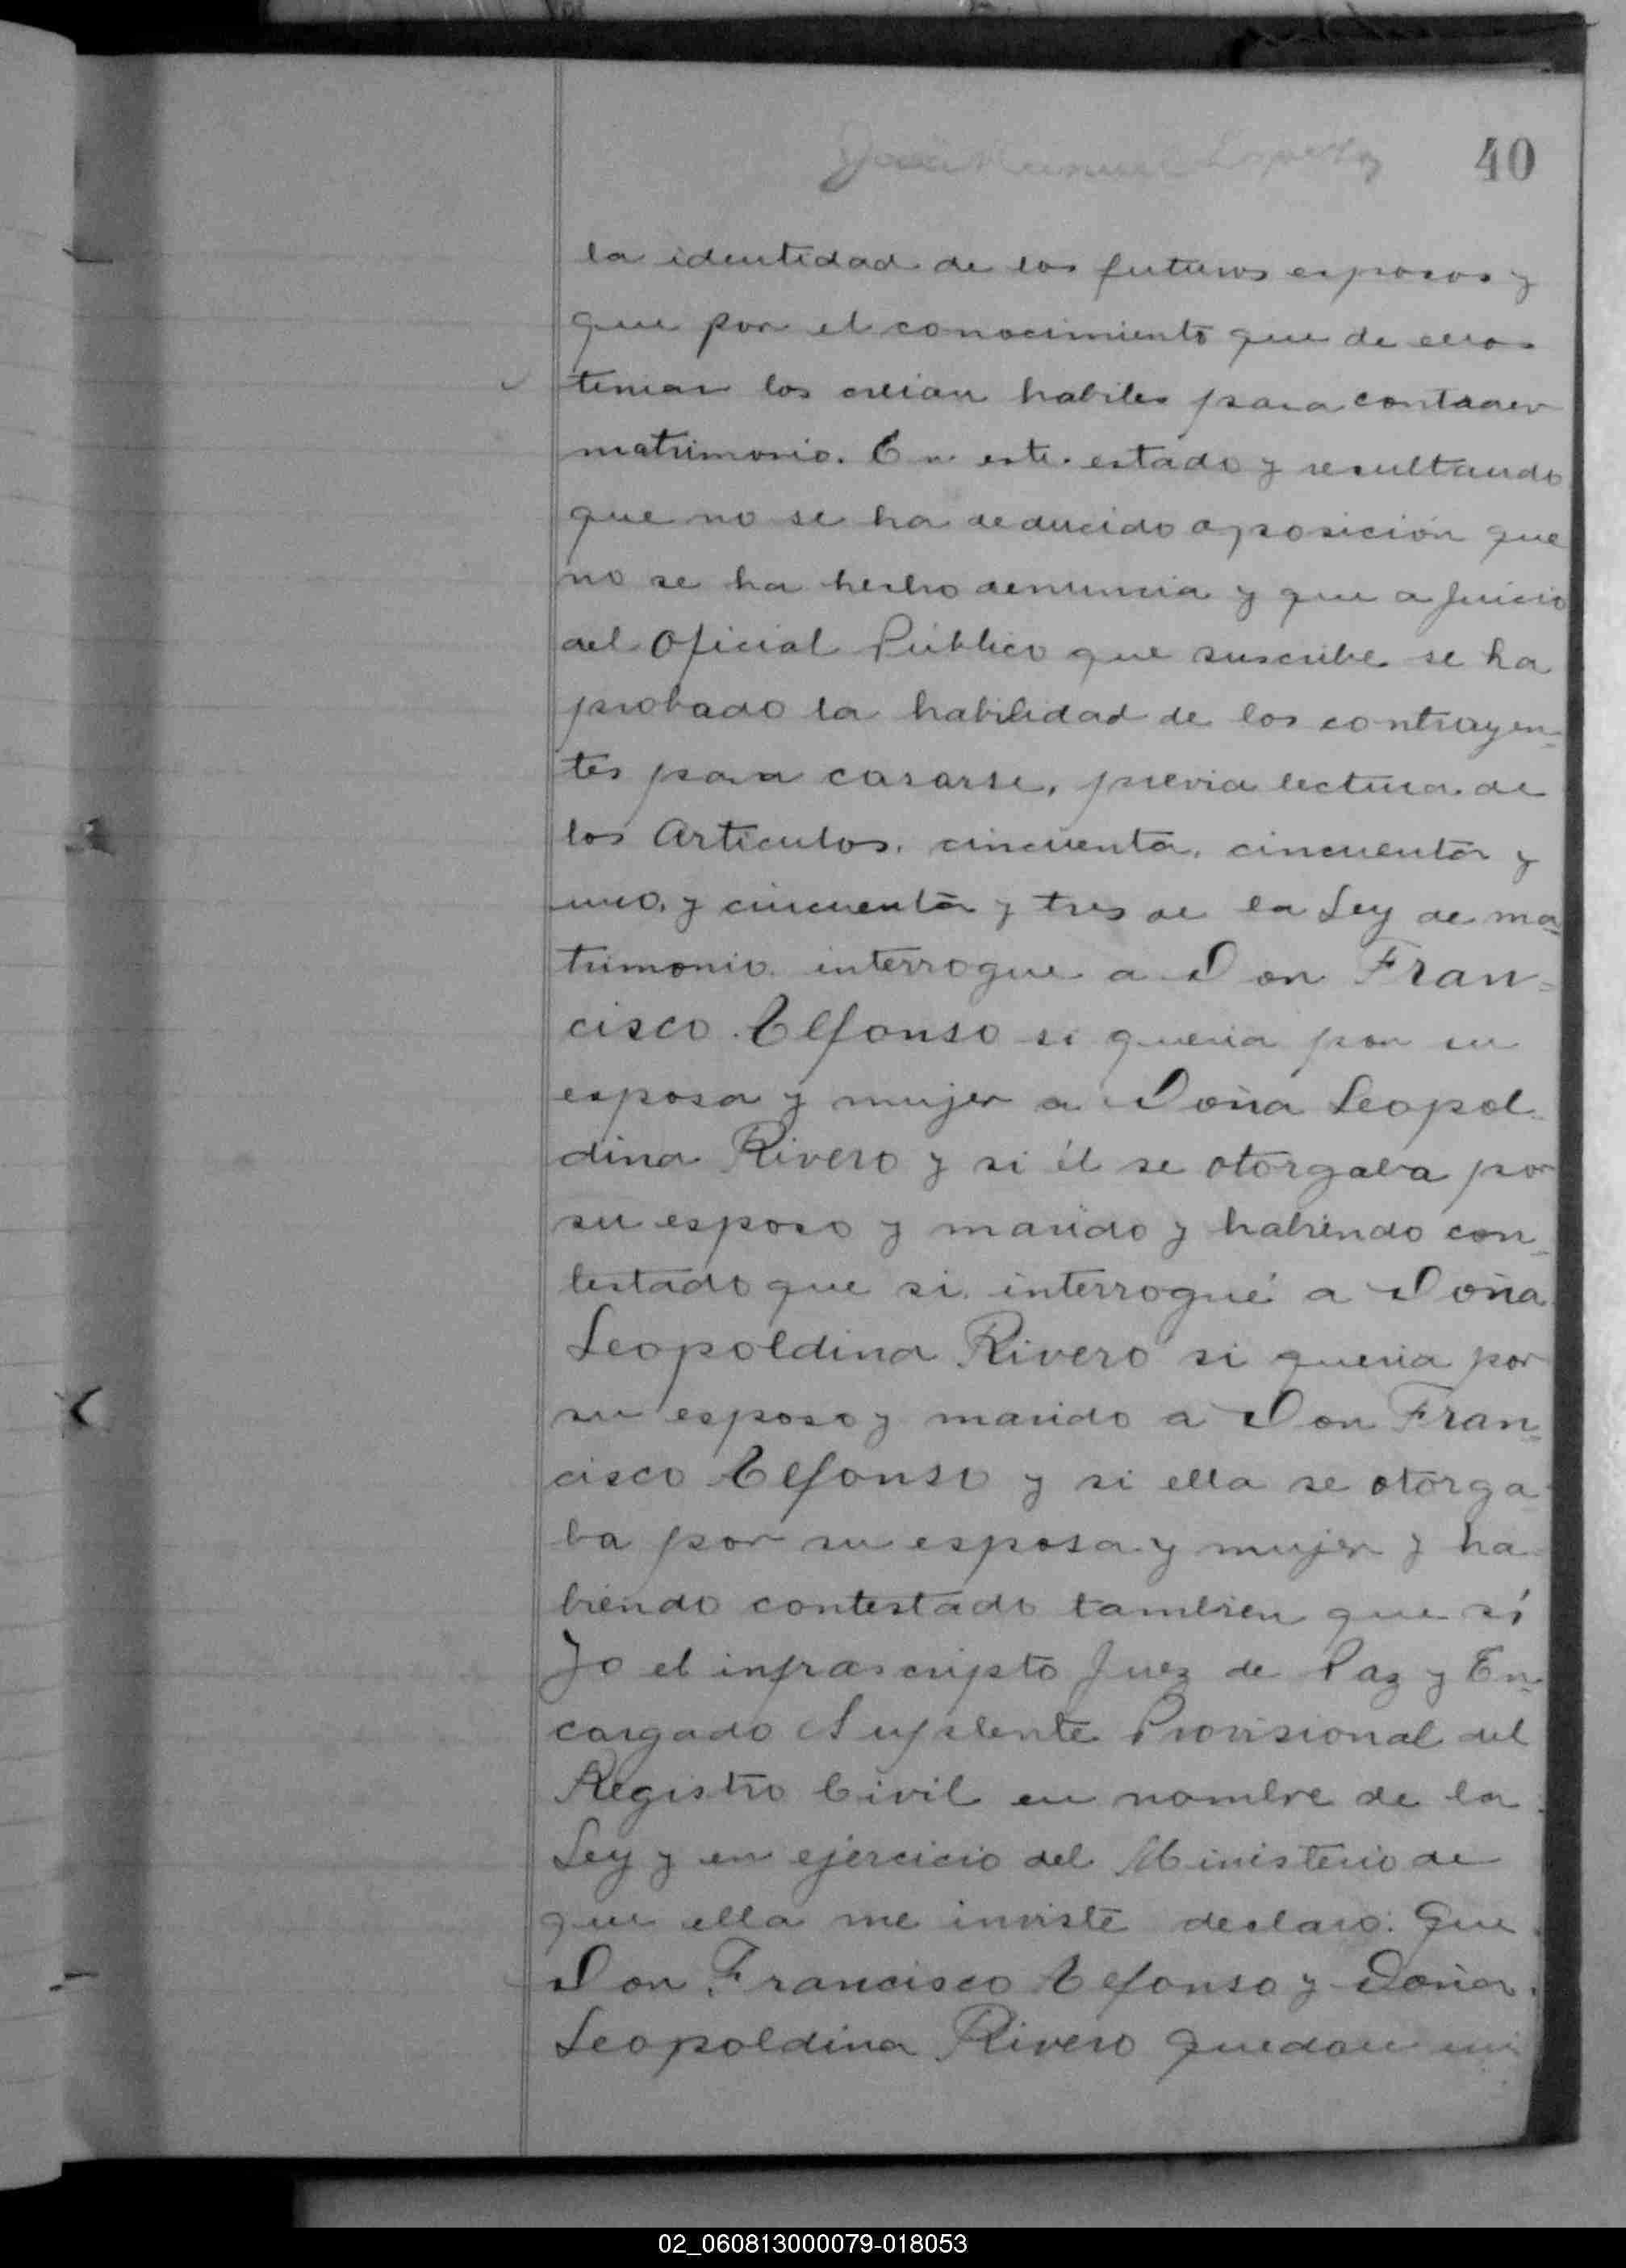 40
la identidad de los futuros esposos y
que por el conocimiento que de ellos
tenian los creian habiles para contraer
matrimonio. En este estado y resultando
que no se ha deducido oposición que
no se ha hecho denuncia y que a juicio
del Oficial Público que suscribe se ha
probado la habilidad de los contrayen-
tes para casarse, previa lectura de
los Articulos. cincuenta, cincuenta y
uno, y cincuenta y tres de la Ley de ma-
trimonio interrogue a Don Fran=
cisco Elfonso si queria por su
esposa y mujer a Doña Leopol-
dina Rivero y si él se otorgaba por
su esposo y marido y habiendo con-
testado que si interrogué a Doña
Leopoldina Rivero si queria por
su esposo y marido a Don Fran-
cisco Elfonso y si ella se otorga
ba por su esposa y mujer y ha
biendo contestado tambien que sí
Yo el infrascripto Juez de Paz y En-
cargado Suplente Provisional del
Registro Civil en nombre de la
Ley y en ejercicio del Ministerio de
que ella me inviste declaro: Que
Don Francisco Elfonso y Doña
Leopoldina Rivero quedan uni
02_060813000079-018053